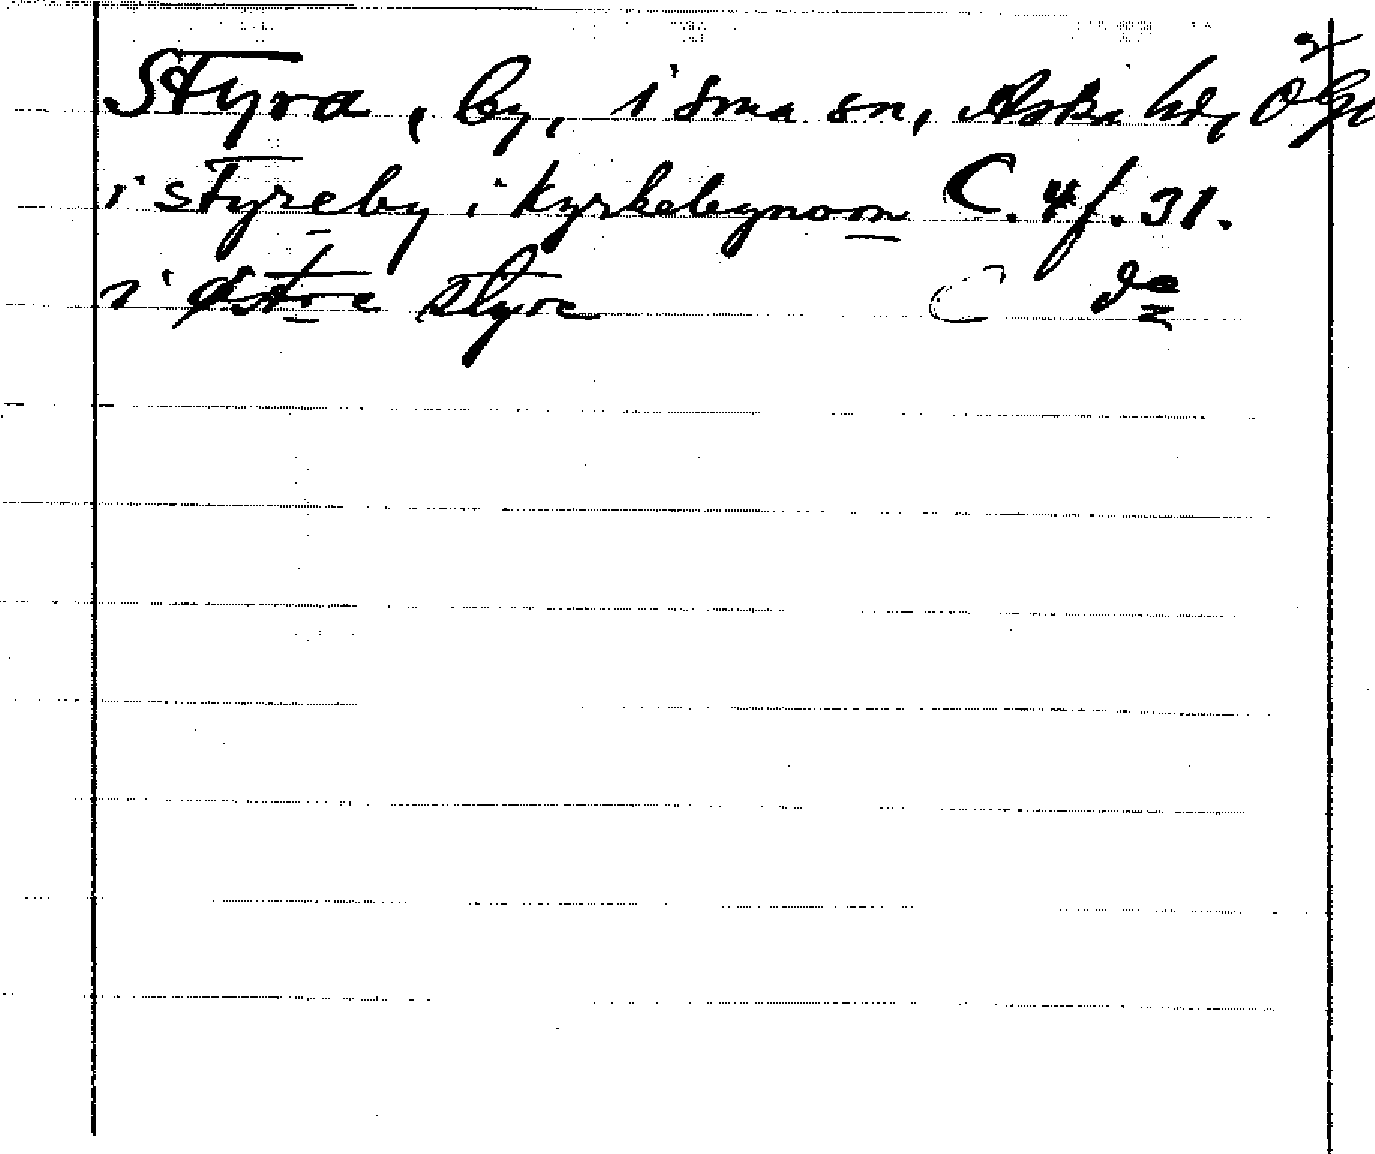 Styra, by, i sma sn, Aska hd, Ögl
i styreby i kyrkebynom C. 4 f. 31.
i østre styre C do